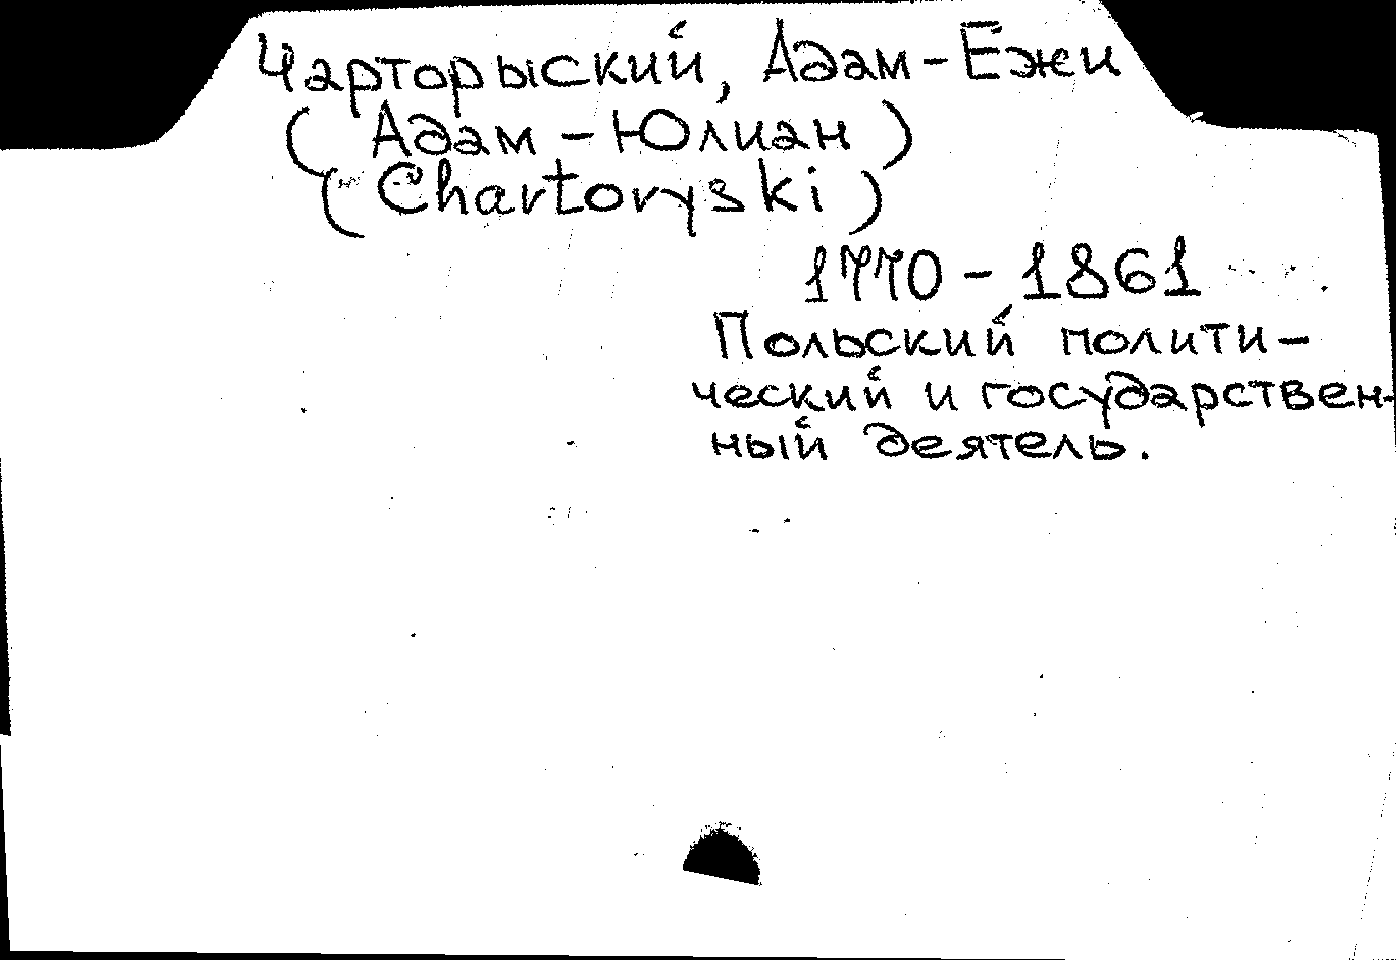 Чарторыский, Адам-Ежи
( Адам - Юлиан )
( Chartoryski )
1770 - 1861
Польский полити-
ческий и государствен-
ный деятель.